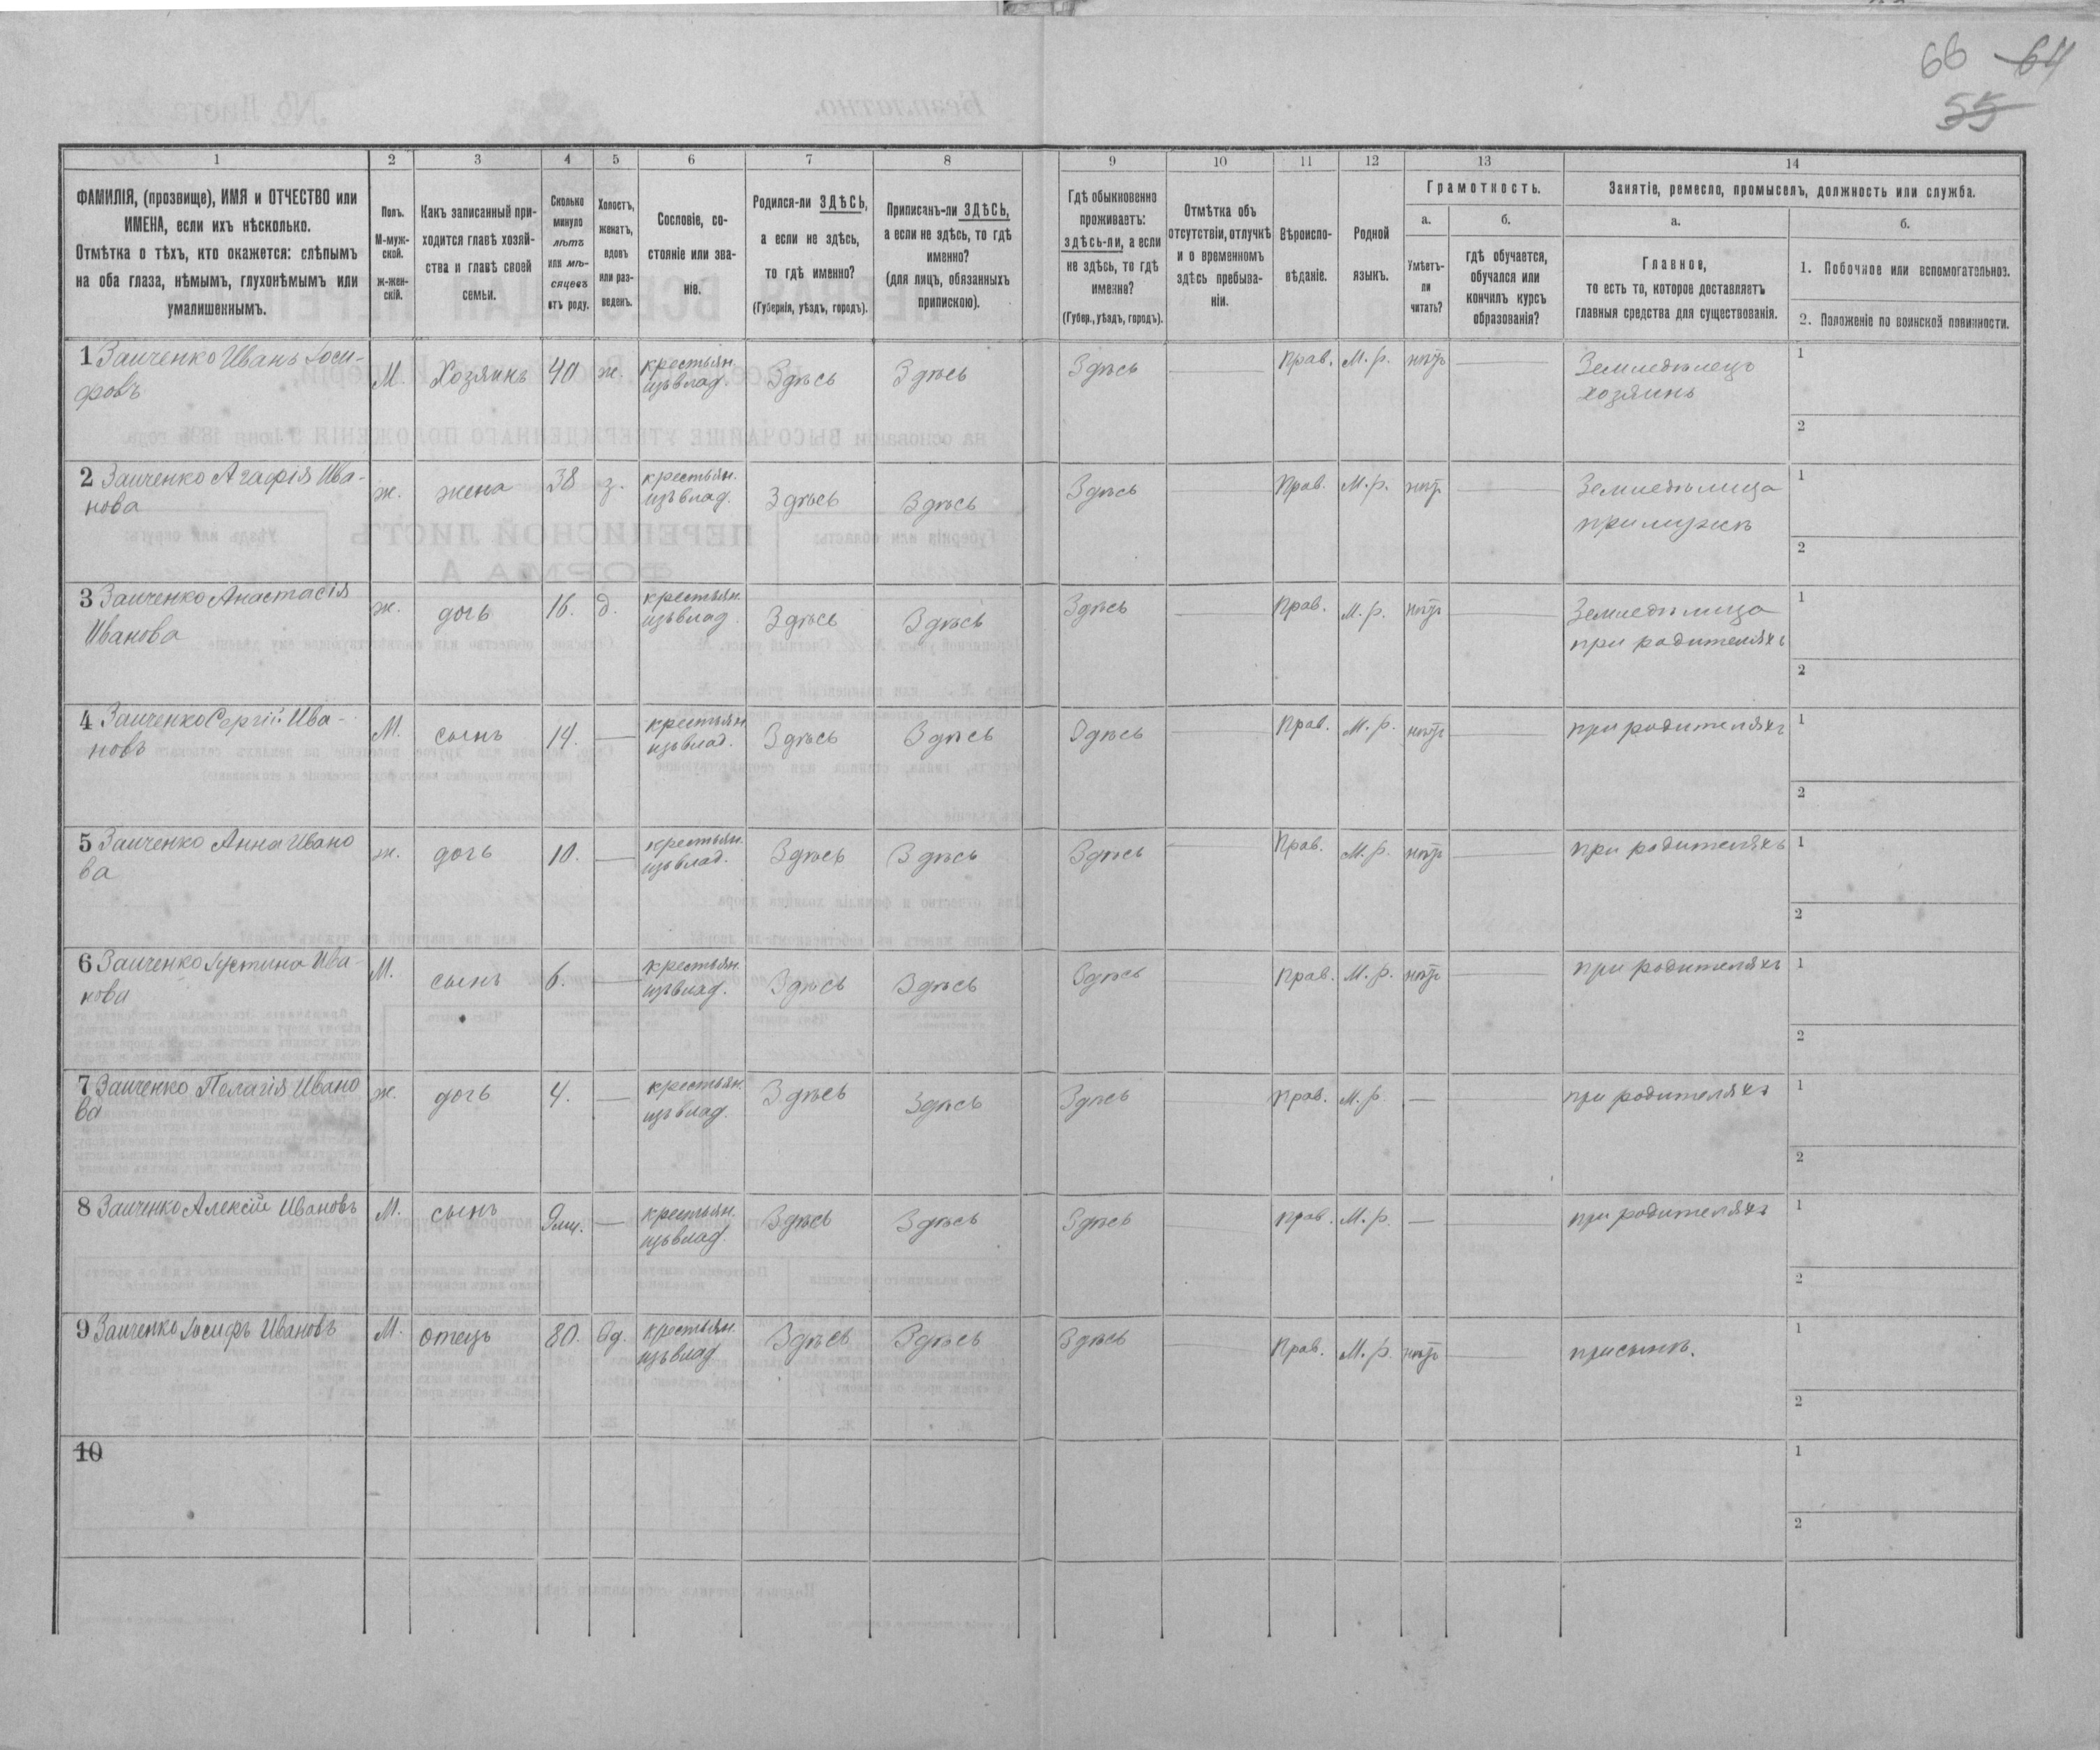 66 64
55
1 2 3 4 5 6 7 8 9 10 11 12 13 14
ФАМИЛІЯ, (прозвище), ИМЯ и ОТЧЕСТВО или
ИМЕНА, если ихъ нѣсколько.
Отмѣтка о тѣхъ, кто окажется: слѣпымъ
на оба глаза, нѣмымъ, глухонѣмымъ или
умалишеннымъ.
Полъ.
М-муж-
ской.
ж-жен-
скій.
Какъ записанный при-
ходится главѣ хозяй-
ства и главѣ своей
семьи.
Сколько
минуло
лѣтъ
или мѣ-
сяцевъ
отъ роду.
Холостъ,
женатъ,
вдовъ
или раз-
веденъ.
Сословіе, со-
стояніе или зва-
ніе.
Родился-ли ЗДѢСЬ,
а если не здѣсь,
то гдѣ именно?
(Губернія, уѣздъ, городъ).
Приписанъ-ли ЗДѢСЬ,
а если не здѣсь, то гдѣ
именно?
(для лицъ, обязанныхъ
припискою).
Гдѣ обыкновенно
проживаетъ:
здѣсь-ли, а если
не здѣсь, то гдѣ
именно?
(Губер., уѣздъ, городъ).
Отмѣтка объ
отсутствіи, отлучкѣ
и о временномъ
здѣсь пребыва-
ніи.
Вѣроиспо-
вѣданіе.
Родной
языкъ.
Грамотность.
а.
Умѣетъ-
ли
читать?
б.
гдѣ обучается,
обучался или
кончилъ курсъ
образованія?
Занятіе, ремесло, промыселъ, должность или служба.
а.
Главное,
то есть то, которое доставляетъ
главныя средства для существованія.
б.
1. Побочное или вспомогательное.
2. Положеніе по воинской повинности.
1 Заиченко Иванъ Іоси-
фовъ
М. Хозяинъ 40 ж. крестьян.
изъ влад. Здѣсь Здѣсь Здѣсь Прав. М. р. нѣтъ Земледѣлецъ
хозяинъ
1
2
2 Заиченко Агафія Ива-
нова
ж. жена 38 з. крестьян.
изъ влад. Здѣсь Здѣсь Здѣсь — Прав. М. р. нѣтъ — Земледѣлица
при мужѣ
1
2
3 Заиченко Анастасія
Иванова
ж. дочь 16. д. крестьян.
изъ влад. Здѣсь Здѣсь Здѣсь — Прав. М. р. нѣтъ — Земледѣлица
при родителяхъ
1
2
4 Заиченко Сергій Ива-
новъ
М. сынъ 14. — крестьян
изъ влад. Здѣсь Здѣсь Здѣсь — Прав. М. р. нѣтъ — при родителяхъ
1
2
5 Заиченко Анна Ивано
ва
ж. дочь 10. — крестьян.
изъ влад. Здѣсь Здѣсь Здѣсь — Прав. М. р. нѣтъ — при родителяхъ
1
2
6 Заиченко Ива-
нова
М. сынъ 6. — крестьян.
изъ влад. Здѣсь Здѣсь Здѣсь — Прав. М. р. нѣтъ — при родителяхъ
1
2
7 Заиченко Пелагія Ивано
ва
ж. дочь 4. — крестьян.
изъ влад. Здѣсь Здѣсь Здѣсь — Прав. М. р. — — при родителяхъ
1
2
8 Заиченко Алексій Ивановъ
М. сынъ 9 мц. — крестьян.
изъ влад. Здѣсь Здѣсь Здѣсь — Прав. М. р. — — при родителяхъ
1
2
9 Заиченко Іосифъ Ивановъ
М. отецъ 80. вд. крестьян.
изъ влад. Здѣсь Здѣсь Здѣсь — Прав. М. р. нѣтъ — при сынѣ.
1
2
10
1
2